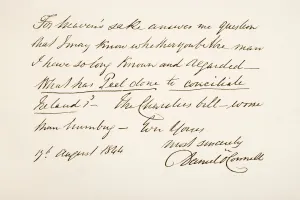 For heaven's sake answer me question
that I may know whether you be the man
I have so long known and regarded –
What has Peel done to conciliate
Ireland? – The Charities bill – worse
than humbug – Ever Yours
most sincerely
Daniel O'Connell
17th August 1844